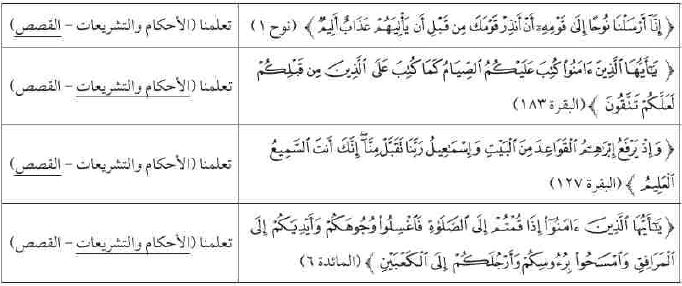 ﴿ إِنَّآ أَرْسَلْنَا نُوحًا إِلَىٰ قَوْمِهِۦٓ أَنْ أَنذِرْ قَوْمَكَ مِن قَبْلِ أَن يَأْتِيَهُمْ عَذَابٌ أَلِيمٌ ﴾ (نوح ١)
تعلمنا (الأحكام والتشريعات - القصص)
﴿ يَٰٓأَيُّهَا ٱلَّذِينَ ءَامَنُوا۟ كُتِبَ عَلَيْكُمُ ٱلصِّيَامُ كَمَا كُتِبَ عَلَى ٱلَّذِينَ مِن قَبْلِكُمْ
لَعَلَّكُمْ تَتَّقُونَ ﴾ (البقرة ١٨٣)
تعلمنا (الأحكام والتشريعات - القصص)
﴿ وَإِذْ يَرْفَعُ إِبْرَٰهِـۧمُ ٱلْقَوَاعِدَ مِنَ ٱلْبَيْتِ وَإِسْمَٰعِيلُ رَبَّنَا تَقَبَّلْ مِنَّآ ۖ إِنَّكَ أَنتَ ٱلسَّمِيعُ
ٱلْعَلِيمُ ﴾ (البقرة ١٢٧)
تعلمنا (الأحكام والتشريعات - القصص)
﴿ يَٰٓأَيُّهَا ٱلَّذِينَ ءَامَنُوٓا۟ إِذَا قُمْتُمْ إِلَى ٱلصَّلَوٰةِ فَٱغْسِلُوا۟ وُجُوهَكُمْ وَأَيْدِيَكُمْ إِلَى
ٱلْمَرَافِقِ وَٱمْسَحُوا۟ بِرُءُوسِكُمْ وَأَرْجُلَكُمْ إِلَى ٱلْكَعْبَيْنِ ﴾ (المائدة ٦)
تعلمنا (الأحكام والتشريعات - القصص)